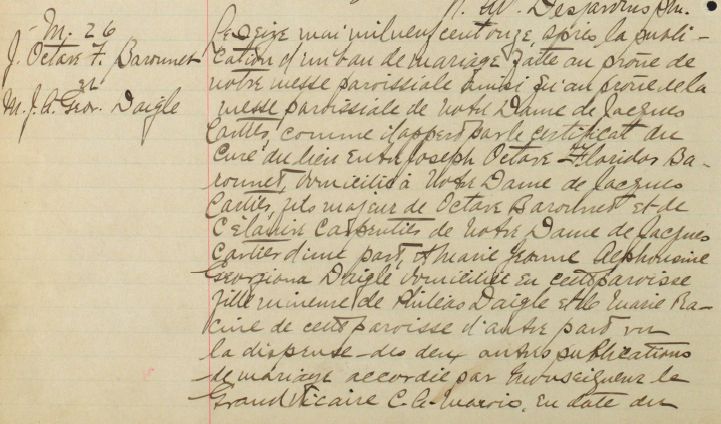 N. M. Desjardins Ptre.
M. 26
J. Octave F. Baronnet
et
M. J. A. Geor. Daigle
Le seize mai mil neuf cent onze, après la publi-
cation d'un ban de mariage faite au prône de
notre messe paroissiale ainsi qu'au prône de la
messe paroissiale de Notre Dame de Jacques
Cartier, comme il appert par le certificat du
Curé du lieu entre Joseph Octave Floridor Ba-
ronnet, domicilié à Notre Dame de Jacques
Cartier, fils majeur de Octave Baronnet et de
Célanire Carpentier de Notre Dame de Jacques
Cartier d'une part, et Marie Jeanne Alphonsine
Georgiana Daigle domiciliée en cette paroisse
fille mineure de Philéas Daigle et de Marie Ra-
cine de cette paroisse d'autre part vu
la dispense des deux autres publications
de mariage accordée par Monseigneur le
Grand Vicaire C. A. Marois, en date du